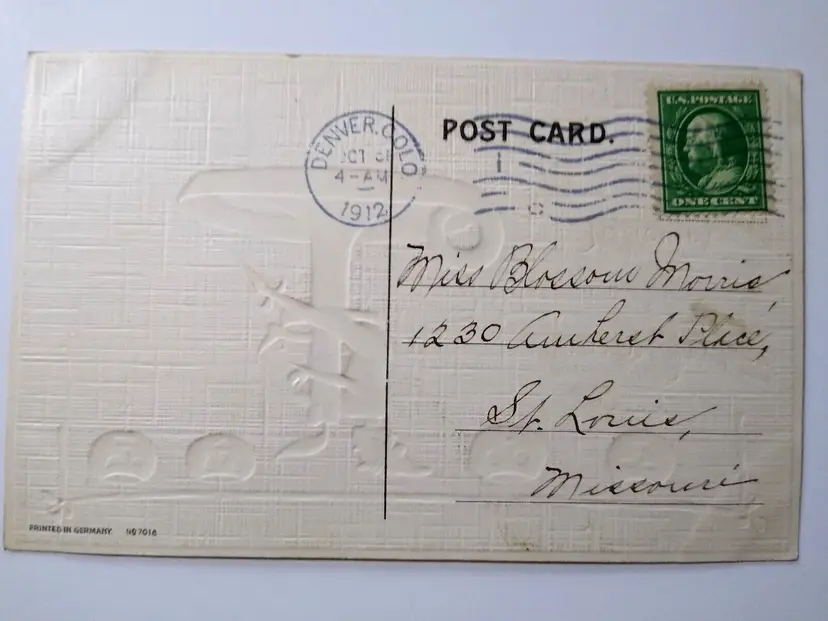 POST CARD.
U.S. POSTAGE
ONE CENT
DENVER, COLO
OCT 31
4-AM
1912
Miss Blossom Morris,
1230 Amherst Place,
St. Louis,
Missouri
PRINTED IN GERMANY. No 7016